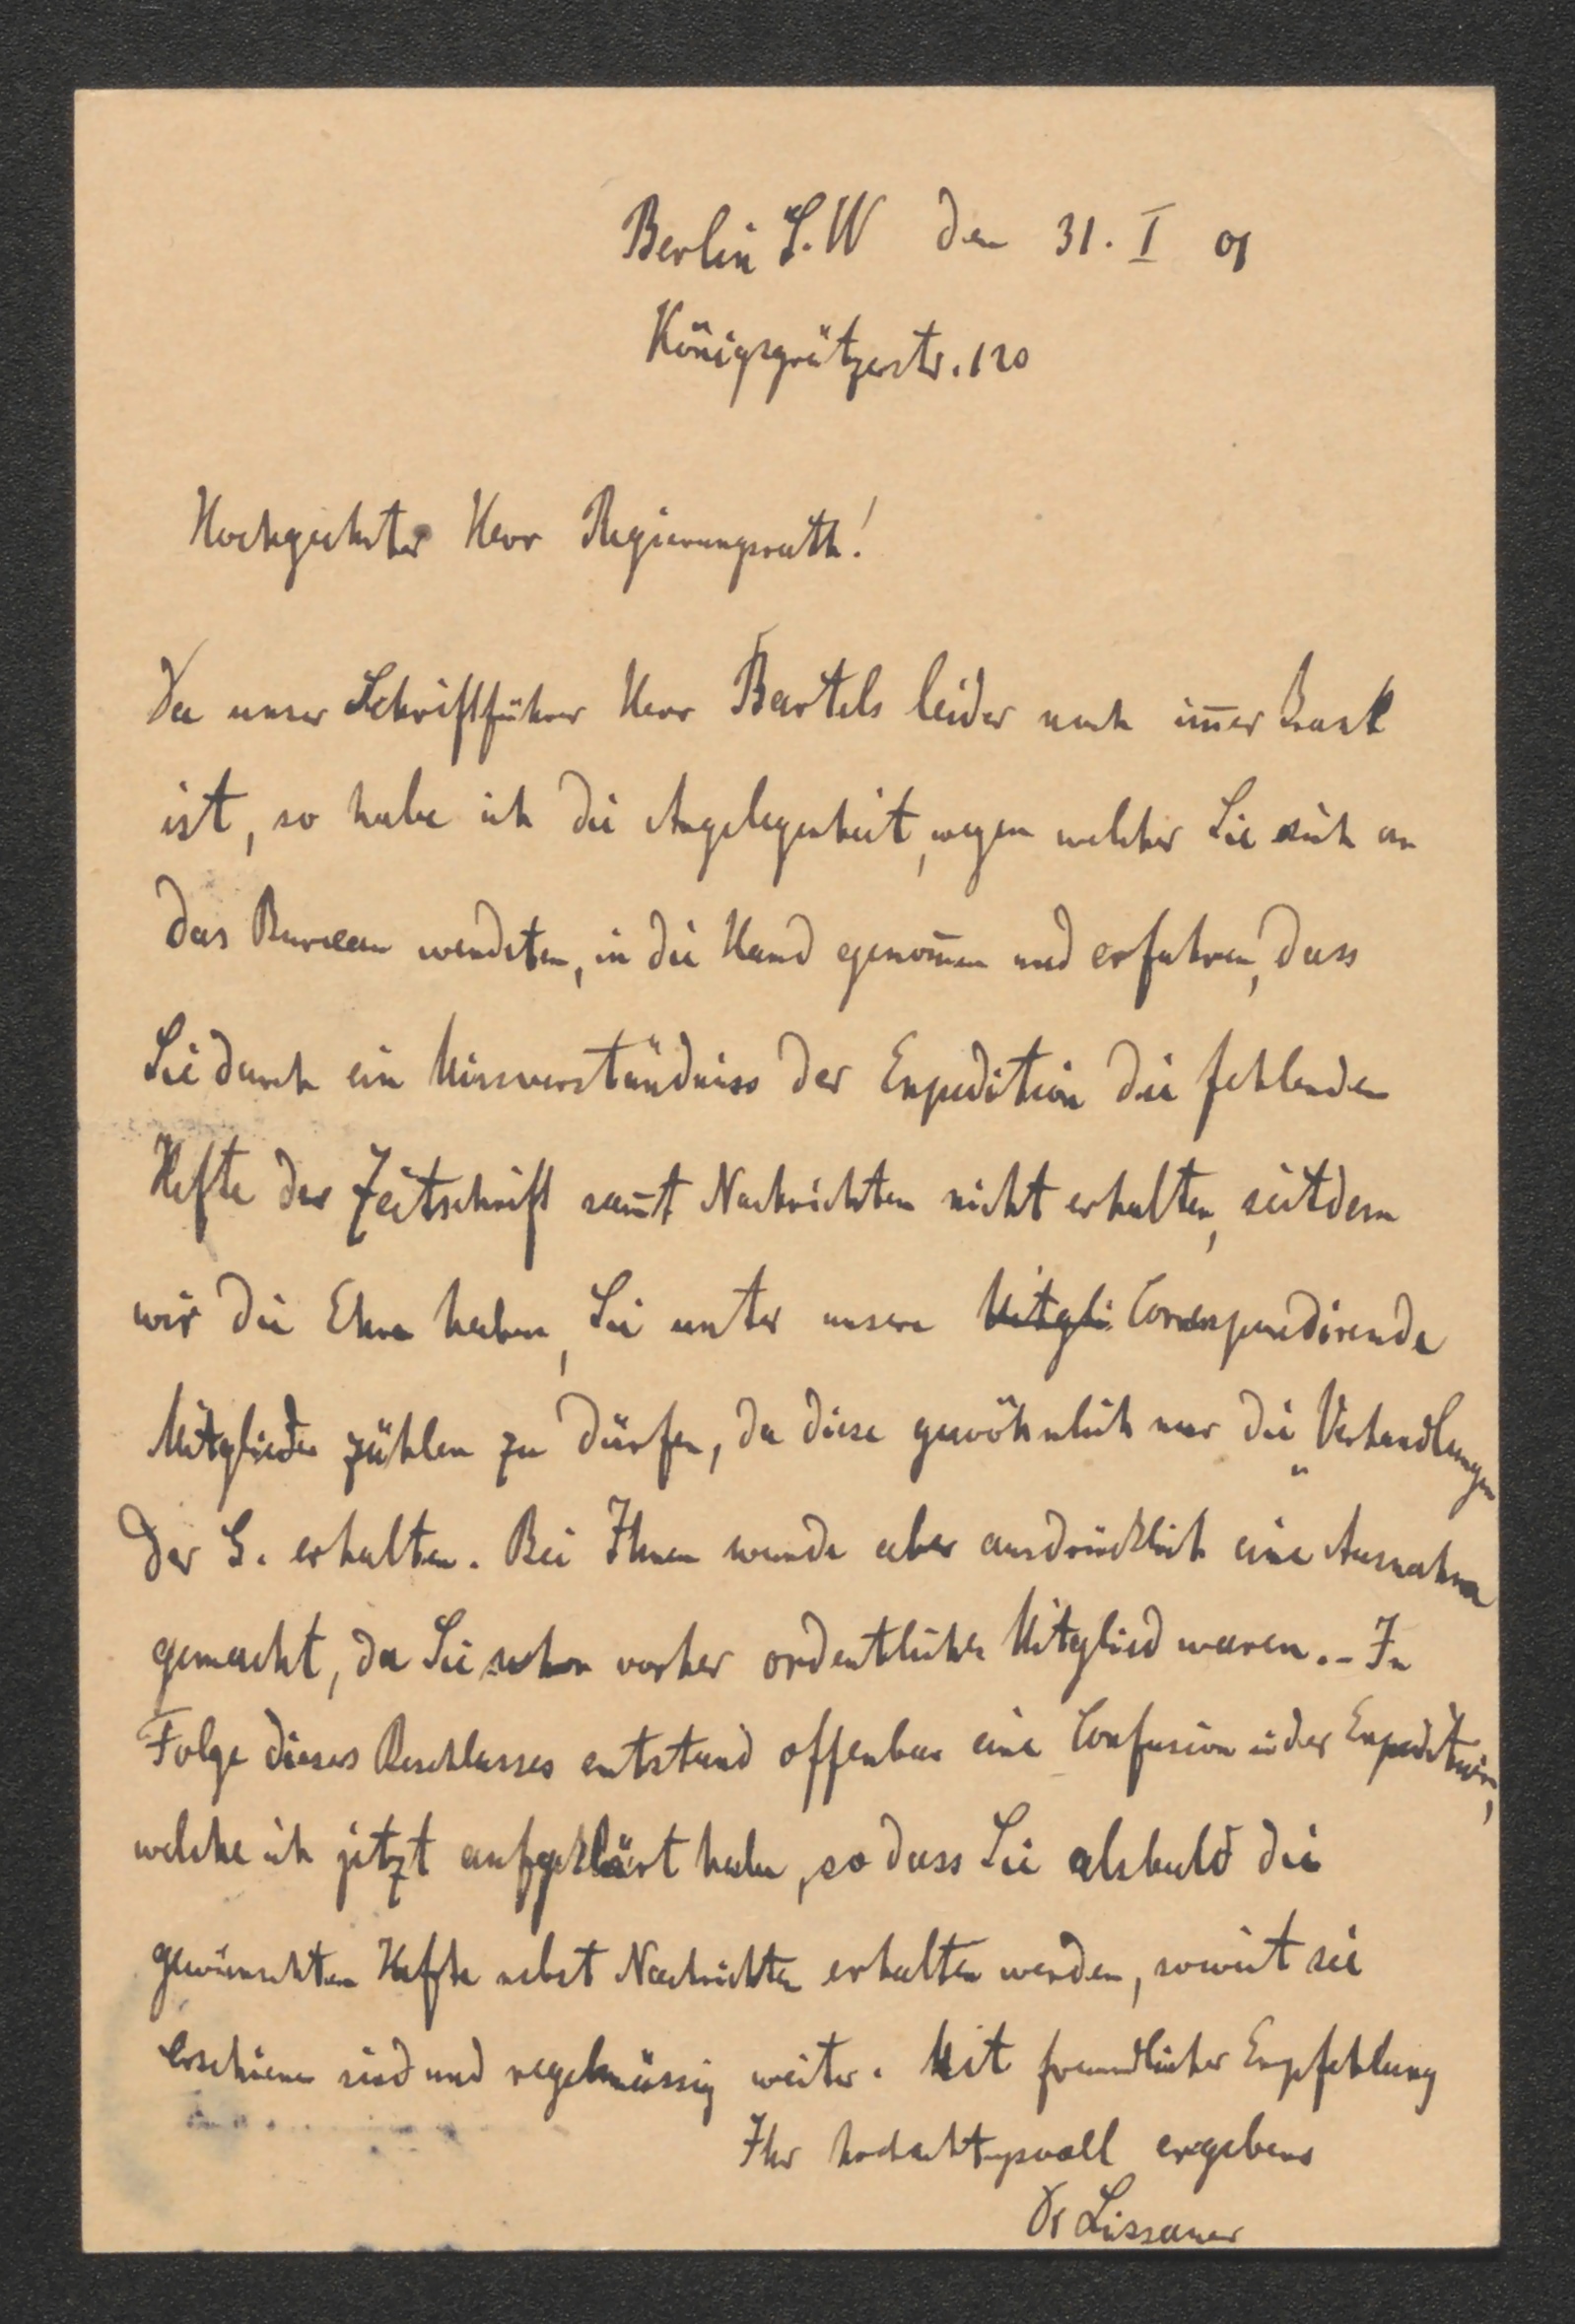 Berlin S.W den 31. I 01
Königgrätzerstr. 120
Hochgeehrter Herr Regierungsrath!
Da unser Schriftführer Herr Bartels leider noch im̄er krank
ist, so habe ich die Angelegenheit, wegen welcher Sie sich an
das Bureau wendeten, in die Hand genom̄en und erfahren, dass
Sie durch ein Missverständniss der Expedition die fehlenden
Hefte der Zeitschrift sam̄t Nachrichten nicht erhalten, seitdem
wir die Ehre haben, Sie unter unsere Mitgli Correspondirende
Mitglieder zählen zu dürfen, da diese gewöhnlich nur die „Verhandlungen
der G. erhalten. Bei Ihnen wurde aber ausdrücklich eine Ausnahme
gemacht, da Sie schon vorher ordentliches Mitglied waren. – In
Folge dieses Beschlusses entstand offenbar eine Confusion in der Expedition,
welche ich jetzt aufgeklärt habe, so dass Sie alsbald die
gewünschten Hefte nebst Nachrichten erhalten werden, soweit sie
erschienen sind und regelmässig weiter. Mit freundlicher Empfehlung
Ihr hochachtungsvoll ergebens
Dr Lissauer